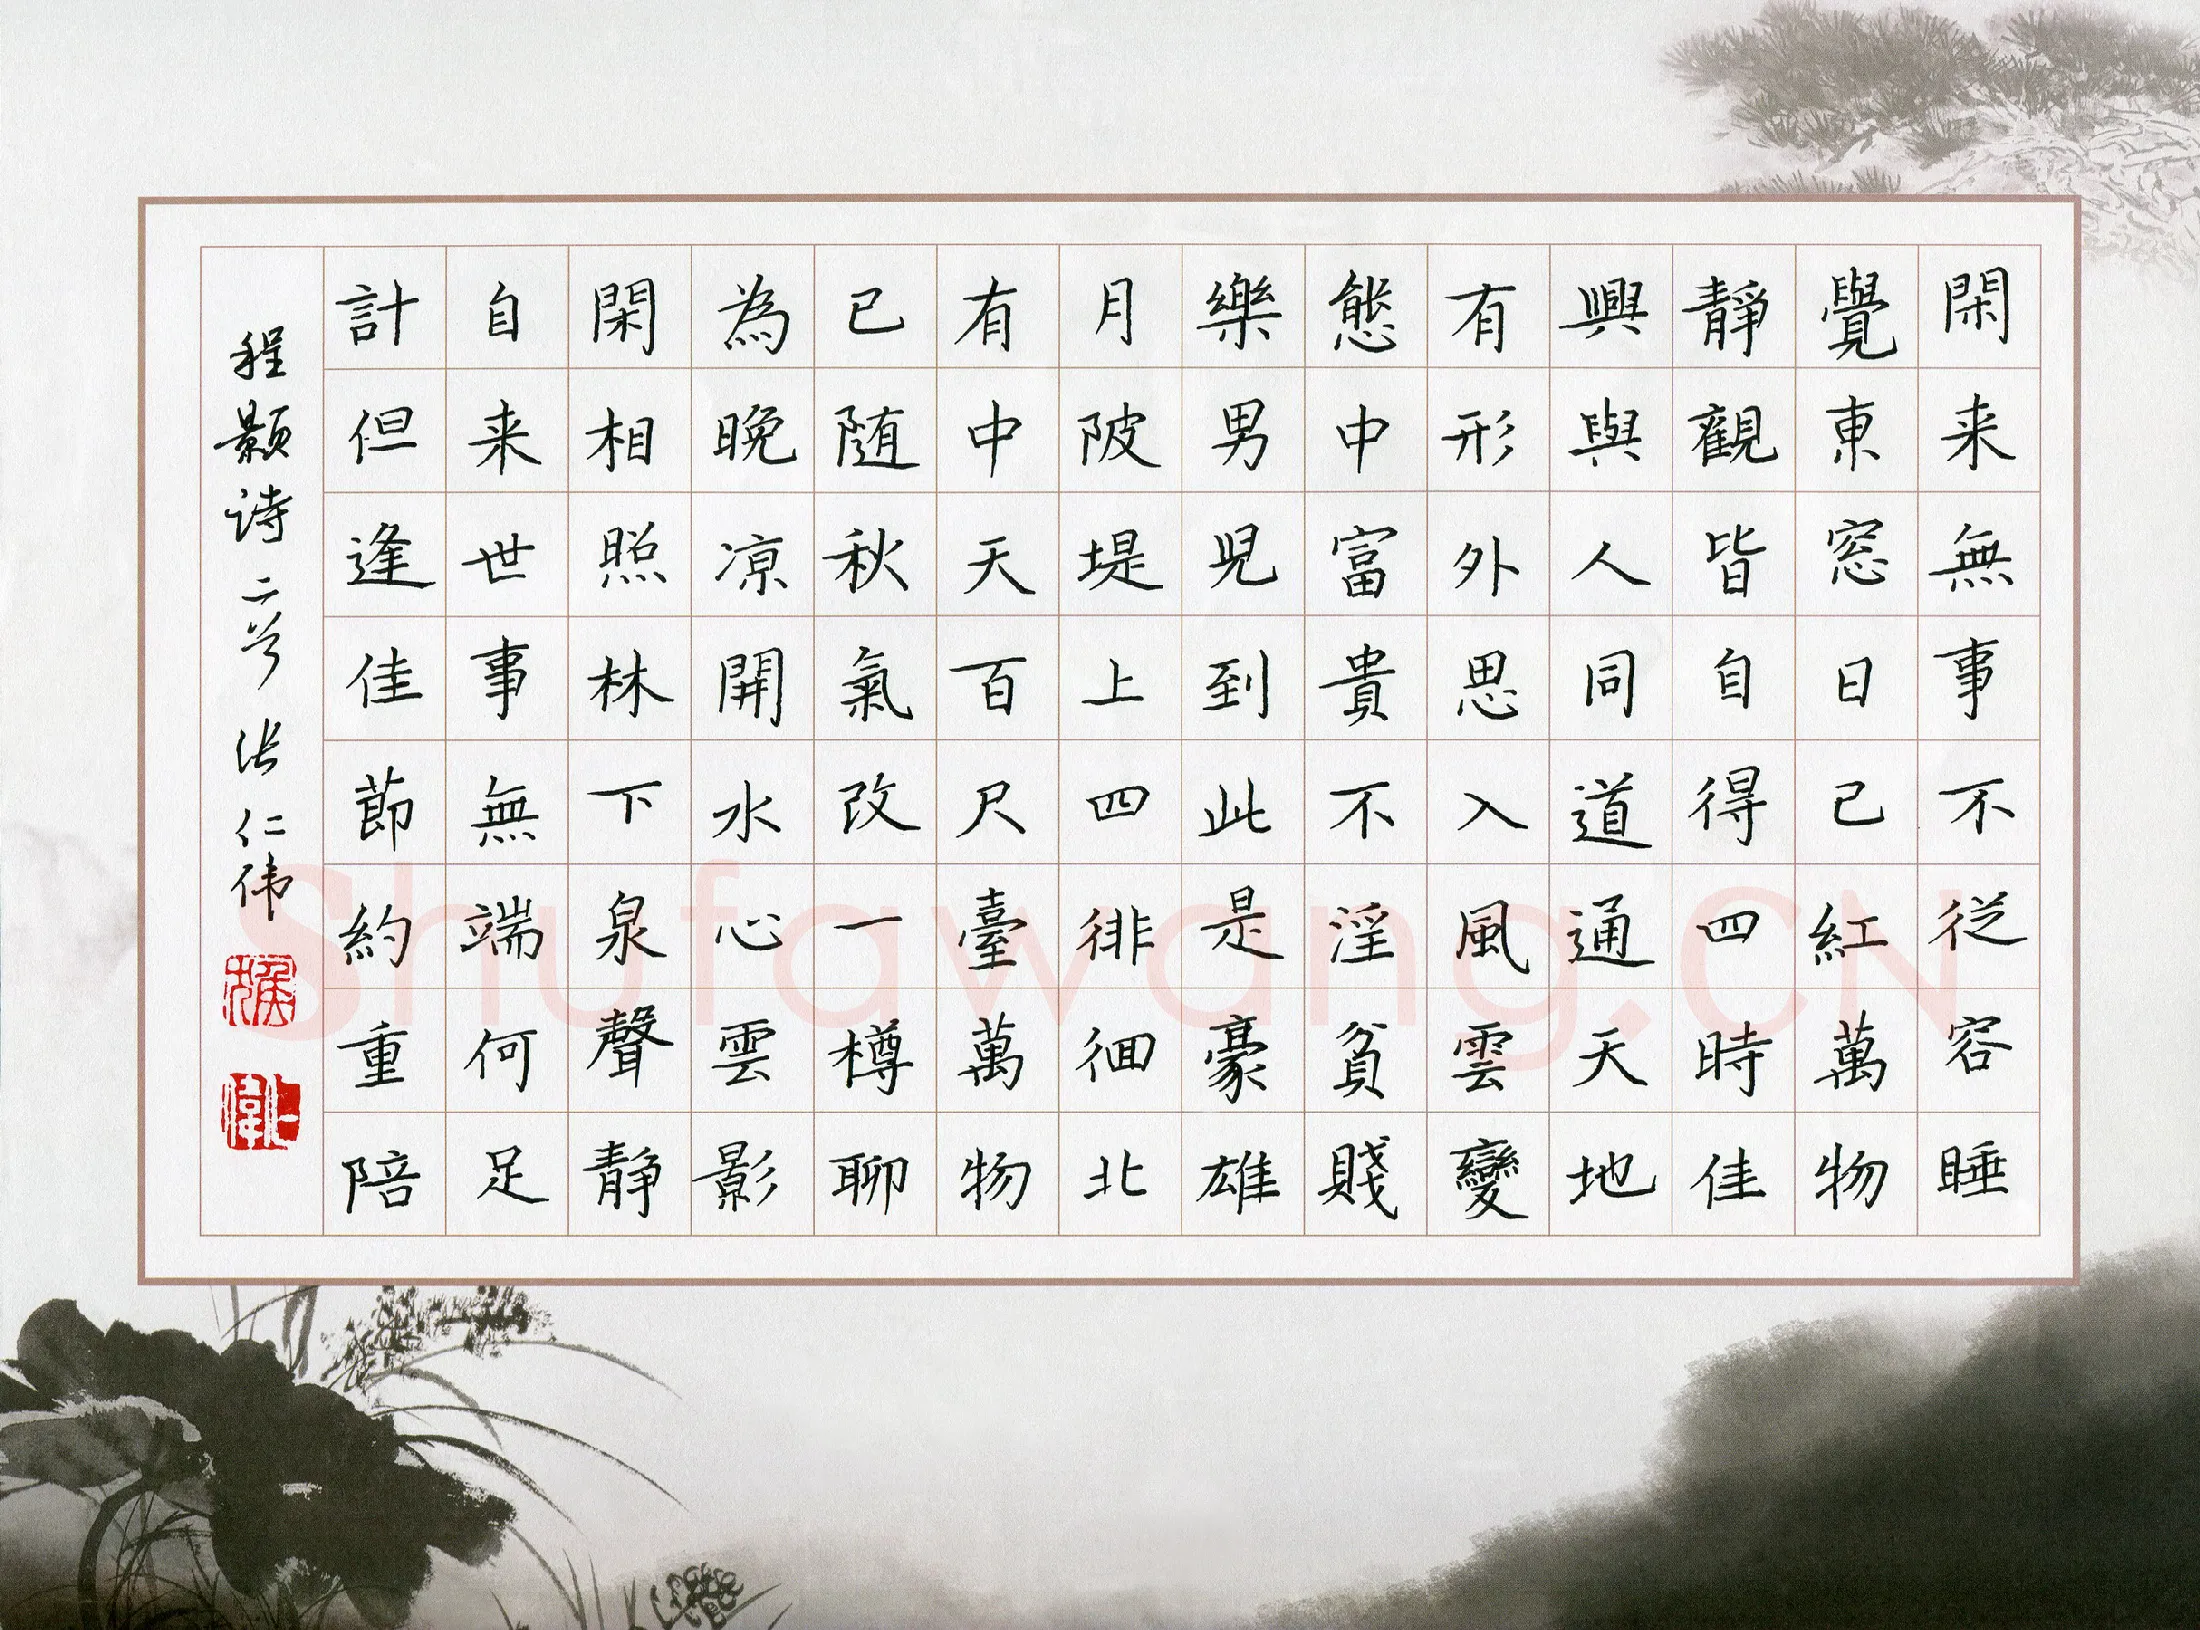 閑来無事不從容睡
覺東窓日已紅萬物
靜觀皆自得四時佳
興與人同道通天地
有形外思入風雲變
態中富貴不淫貧賤
樂男児到此是豪雄
月陂堤上四徘徊北
有中天百尺臺萬物
已随秋氣改一樽聊
為晩凉開水心雲影
閑相照林下泉聲静
自来世事無端何足
計但逢佳節約重陪
程颢诗二首 张仁伟
Shufawang.CN